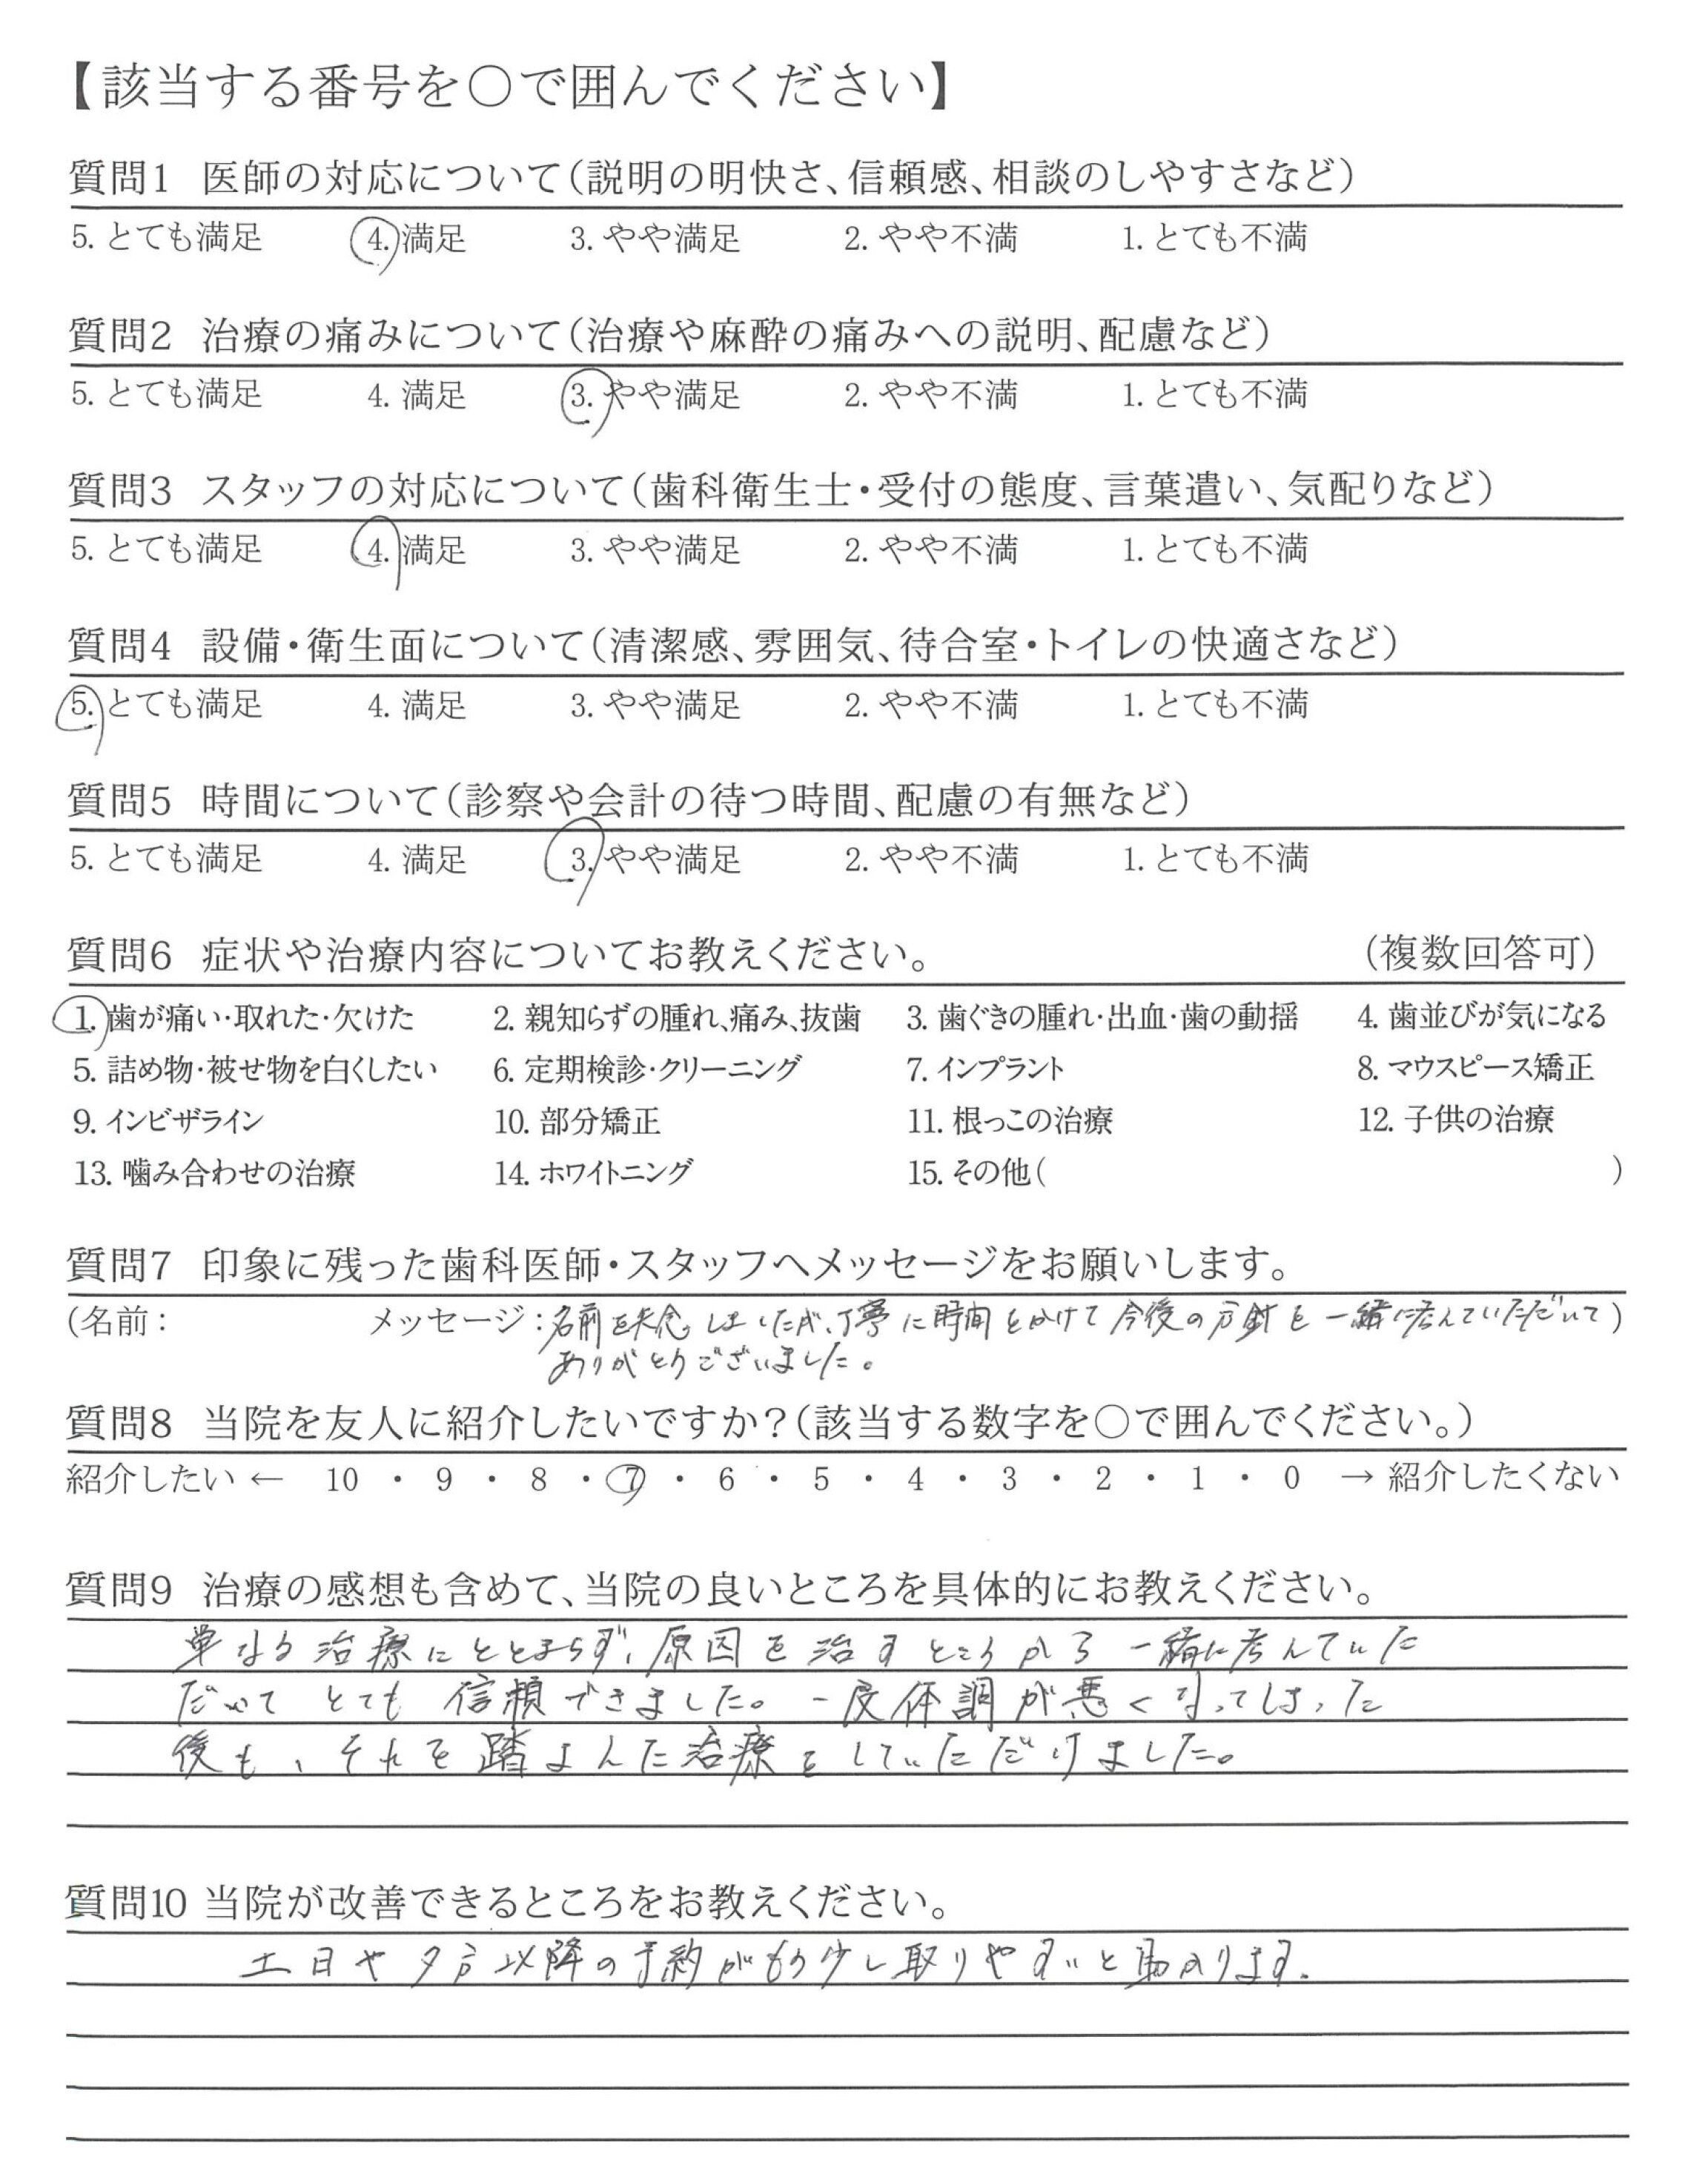 【該当する番号を○で囲んでください】
質問1 医師の対応について(説明の明快さ、信頼感、相談のしやすさなど)
5. とても満足 4. 満足 3. やや満足 2. やや不満 1. とても不満
質問2 治療の痛みについて(治療や麻酔の痛みへの説明、配慮など)
5. とても満足 4. 満足 3. やや満足 2. やや不満 1. とても不満
質問3 スタッフの対応について(歯科衛生士・受付の態度、言葉遣い、気配りなど)
5. とても満足 4. 満足 3. やや満足 2. やや不満 1. とても不満
質問4 設備・衛生面について(清潔感、雰囲気、待合室・トイレの快適さなど)
5. とても満足 4. 満足 3. やや満足 2. やや不満 1. とても不満
質問5 時間について(診察や会計の待つ時間、配慮の有無など)
5. とても満足 4. 満足 3. やや満足 2. やや不満 1. とても不満
質問6 症状や治療内容についてお教えください。 (複数回答可)
1. 歯が痛い・取れた・欠けた 2. 親知らずの腫れ、痛み、抜歯 3. 歯ぐきの腫れ・出血・歯の動揺 4. 歯並びが気になる
5. 詰め物・被せ物を白くしたい 6. 定期検診・クリーニング 7. インプラント 8. マウスピース矯正
9. インビザライン 10. 部分矯正 11. 根っこの治療 12. 子供の治療
13. 噛み合わせの治療 14. ホワイトニング 15. その他( )
質問7 印象に残った歯科医師・スタッフへメッセージをお願いします。
(名前: メッセージ:名前を失念しましたが、丁寧に時間をかけて今後の方針を一緒に考えていただいて)
ありがとうございました。
質問8 当院を友人に紹介したいですか?(該当する数字を○で囲んでください。)
紹介したい ← 10 ・ 9 ・ 8 ・ 7 ・ 6 ・ 5 ・ 4 ・ 3 ・ 2 ・ 1 ・ 0 → 紹介したくない
質問9 治療の感想も含めて、当院の良いところを具体的にお教えください。
単なる治療にとどまらず、原因を治すところから一緒に考えていた
だいてとても信頼できました。一度体調が悪くなってしまった
後も、それを踏まえた治療をしていただけました。
質問10 当院が改善できるところをお教えください。
土日や夕方以降の予約がもう少し取りやすいと助かります。